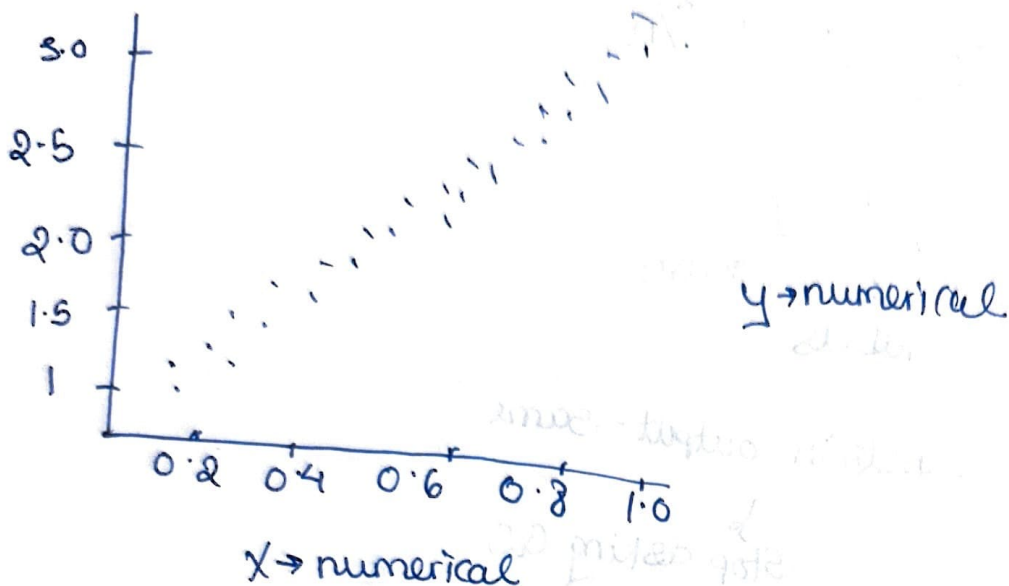 3.0
2.5
2.0
1.5
1
0.2 0.4 0.6 0.8 1.0
y→numerical
X→numerical